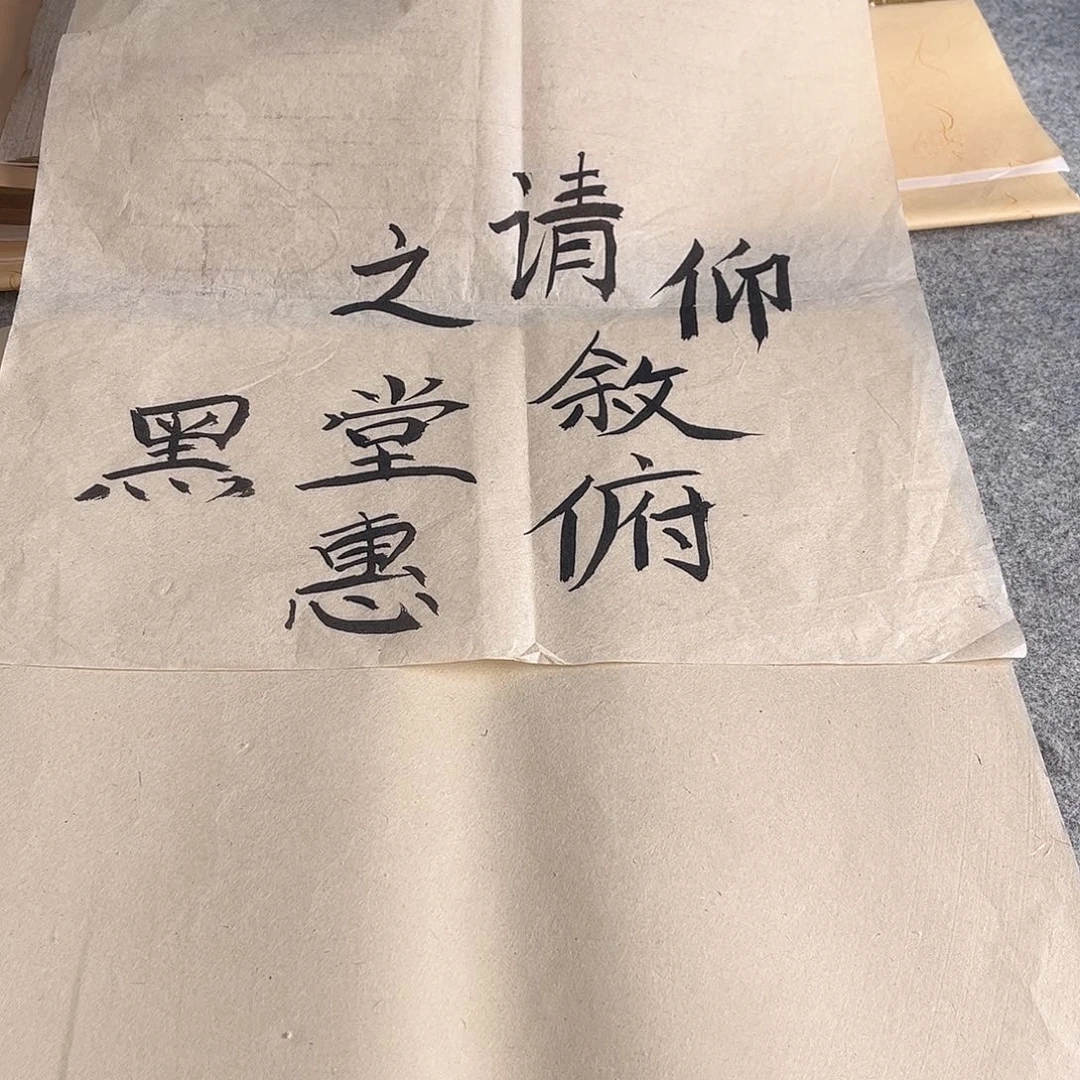 仰
请敘俯
之堂惠
黑